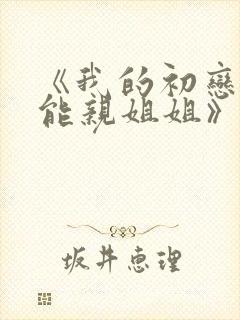 《我的初戀
能親姐姐》
坂井恵理